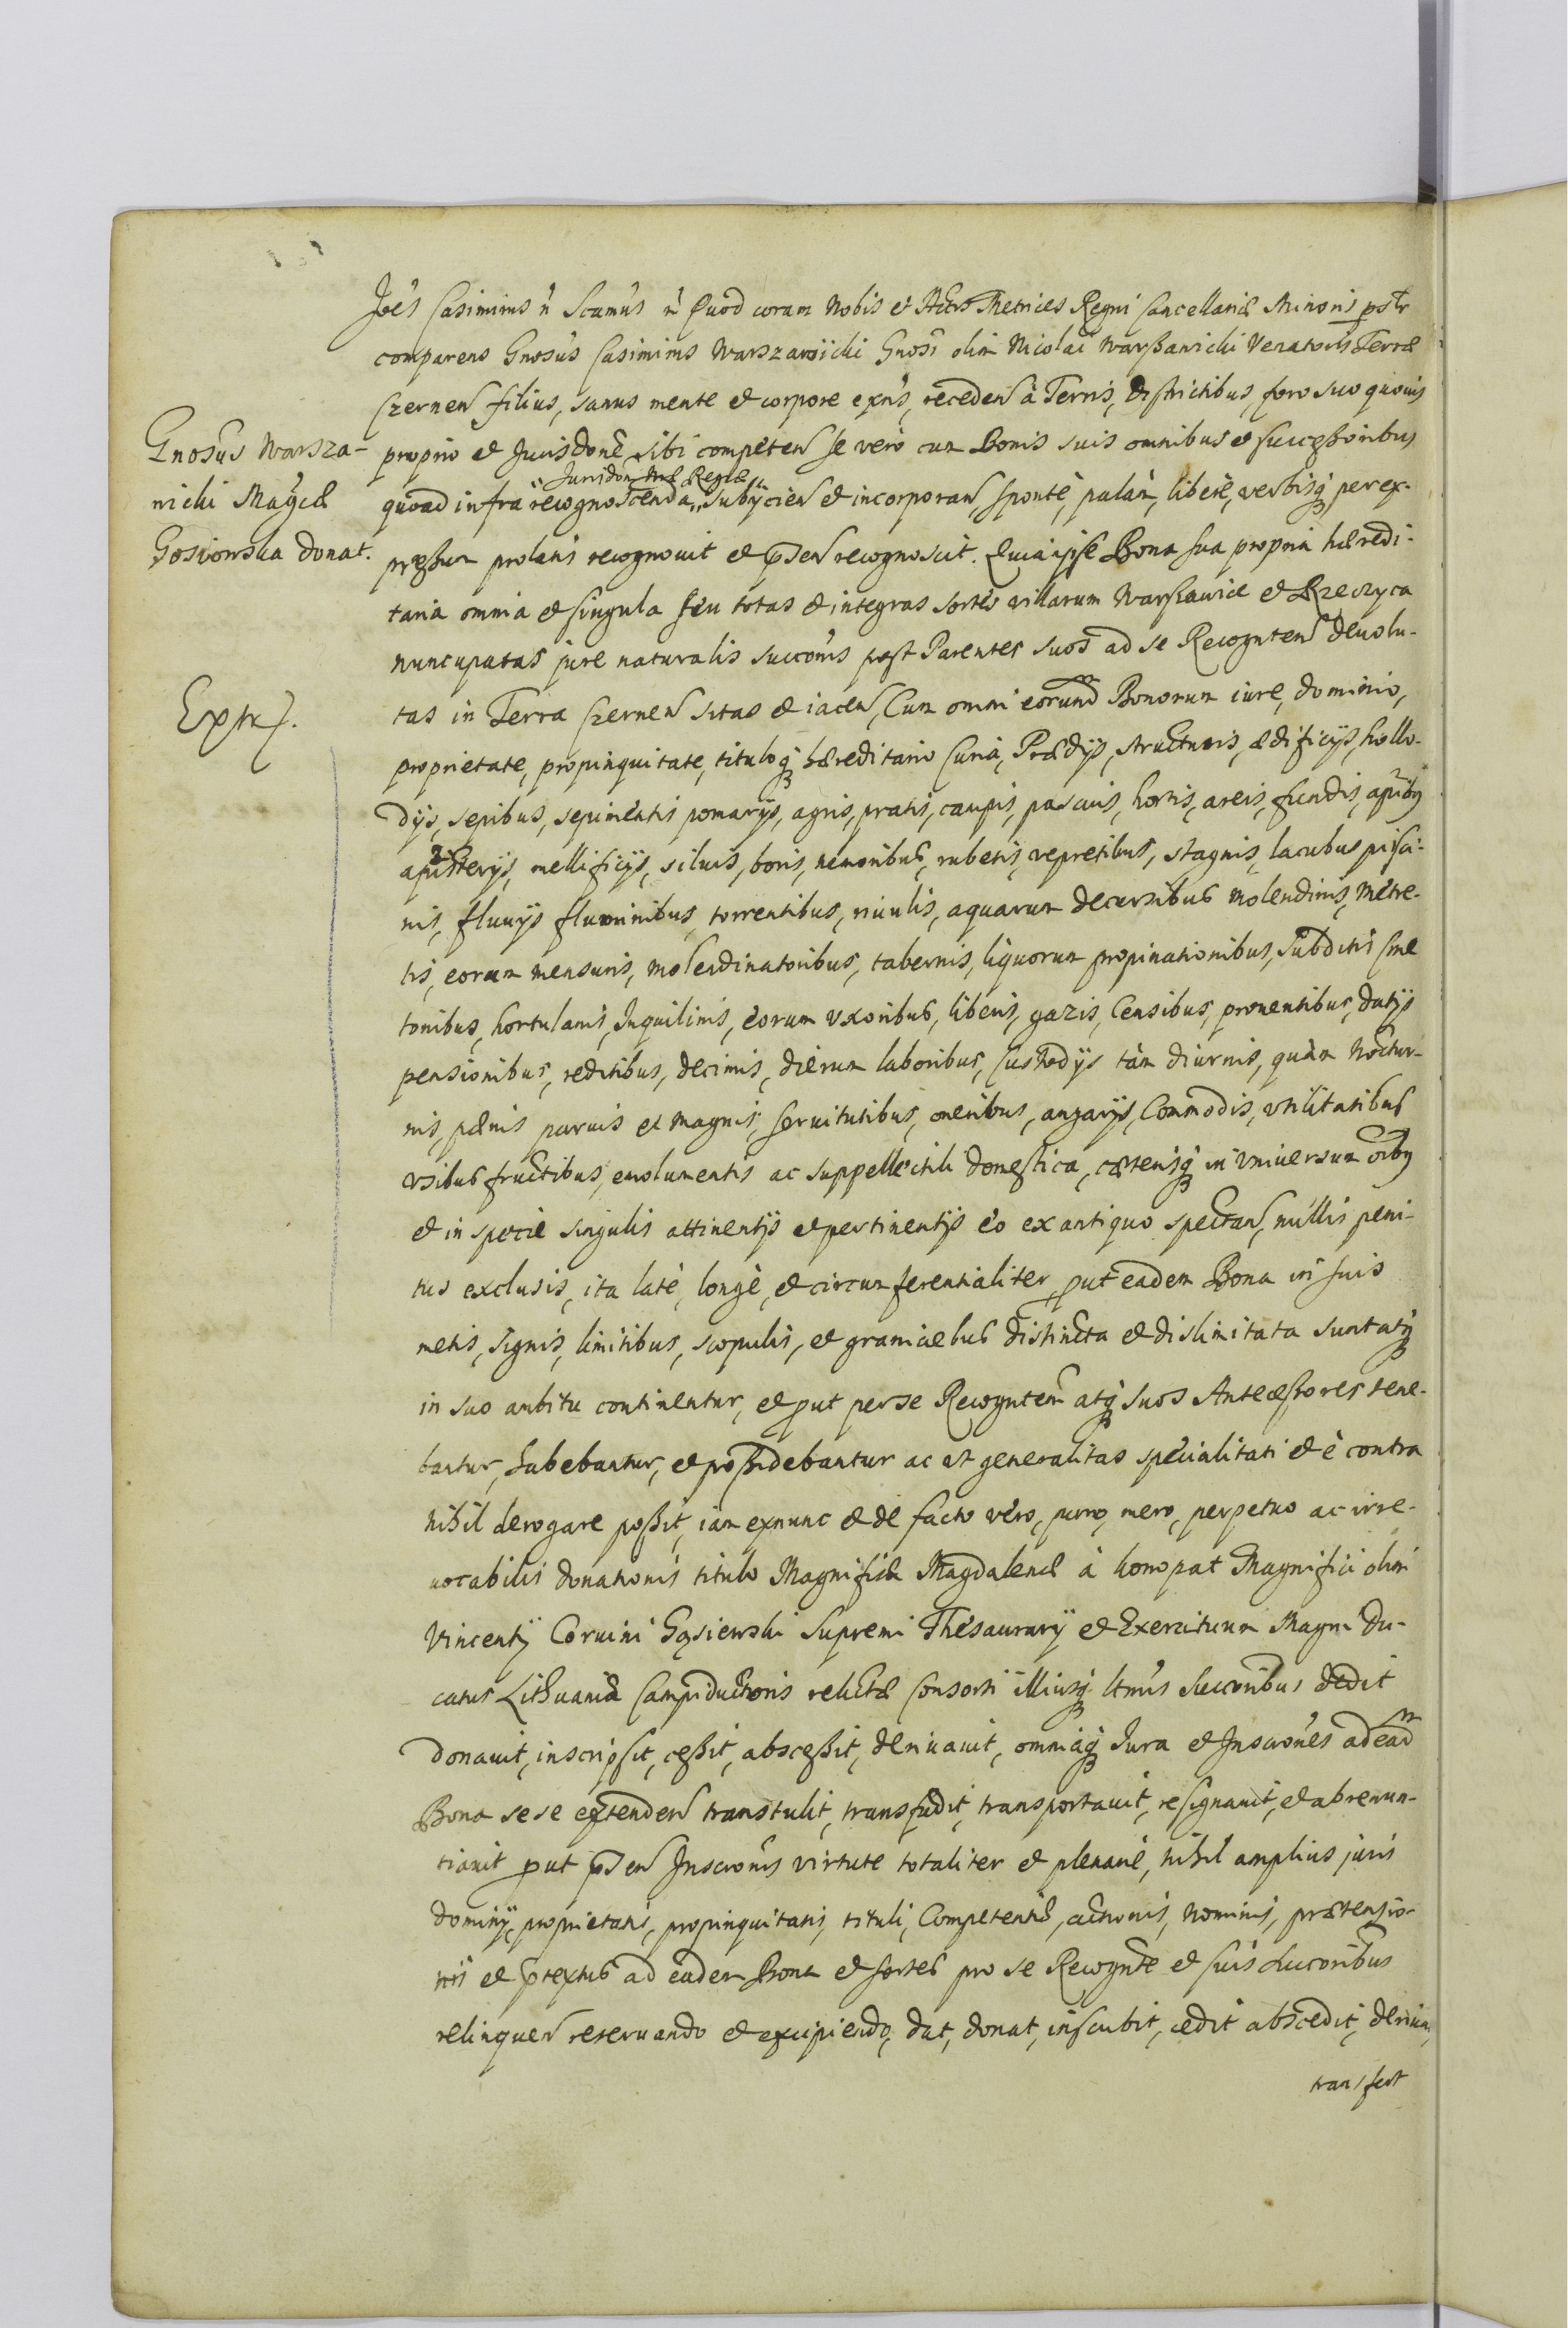 Joēs Casimirus n̄ Scamūs n̄ Quod coram Nobis et Actis Metrices Regni Cancellariæ Minoris pstr
comparens Gnosūs Casimirus Warszawicki Gnosi olim Nicolai Warszawicki Venatoris Terræ
Czernen filius, sanus mente et corpore exn̄s, receden à Terris, districtibus, foro suo quouis
proprio et Jurisdonē sibi competen se vero cum Bonis suis omnibus et successoribus
Jurisdon̄ Regiæ
quoad infra recognoscenda subijcien et incorporan, sponte, palàm, liberè, verbisq per ex-
pressum prolatis recognouit et pn̄sen recognoscit. Quia ipse Bona sua propria hæredi-
taria omnia et singula seu totas et integras sortes villarum Warszawice et Rzeczyca
nuncupatas jure naturalis succonis post Parentes suos ad se Recognten deuolu-
tas in Terra Czernen sitas et iacen, Cum omni eorund̄m Bonorum iure, dominio,
proprietate, propinquitate, tituloq hæreditario Curia, Prædijs, structuris, ædificijs, hollo-
dijs, sepibus, sepimentis pomarijs, agris, pratis, campis, pascuis, hortis, areis, fundis, apibq
apisterijs, mellificijs, siluis, boris, nemoribus, rubetis, vepretibus, stagnis, lacubus pisci-
nis, fluuijs fluminibus, torrentibus, riuulis, aquarum decursibus molendinis, metre-
tis, eorum mensuris, molendinatoribus, tabernis, liquorum propinationibus, subditis Cme
tonibus, hortulanis, Inquilinis, eorum vxoribus, liberis, gazis, Censibus, prouentibus, datijs
pensionibus, reditibus, decimis, dierum laboribus, Custodijs tàm diurnis, quàm Noctur-
nis, pænis paruis et magnis, seruitutibus, oneribus, angarijs, Commodis, vtilitatibus
vsibus fructibus, emolumentis ac suppellectili domestica, cæterisq in vniuersum oībq
et in specie singulis attinentijs et pertinentijs eo ex antiquo spectan, nullis peni-
tus exclusis, ita latè, longè, et circumferentialiter, put eadem Bona in suis
metis, signis, limitibus, scopulis, et graniciebus distincta et dislimitata sunt atq
in suo ambitu continentur, et put per se Recognten̄ atq suos Antecessores tene-
bantur, habebantur, et possidebantur ac vt generalitas specialitati et è contra
nihil derogare possit, iam exnunc et de facto vero, puro, mero, perpetuo ac irre-
uocabilis donationis titulo Magnificæ Magdalenæ à Konopat Magnifici olim
Vincentij Coruini Gąsiewski Supremi Thesaurarij et Exercituum Magni Du-
catus Lithuaniæ Campiductoris relictæ Consorti illiusq ltmis Succoribus dedit
donauit, inscripsit, cessit, abscessit, deriuauit, omniaq Jura et Inscrones ad ead̄m
Bona sese extenden transtulit, transfudit, transportauit, resignauit, et abrenun-
tiauit put pn̄sen Inscronis virtute totaliter et plenariè, nihil amplius juris
dominij, proprietatis, propinquitatis, tituli, Competentiæ, actionis, Nominis, prætensio-
nis et ptextus ad eadem Bona et sortes pro se Recognte et suis Succoribus
relinquen reseruando et excipiendo, dat, donat, inscribit, cedit abscedit, deriuat,
transfert
Gnosūs Warsza-
wicki Magcæ
Gosiowska donat.
Extr.